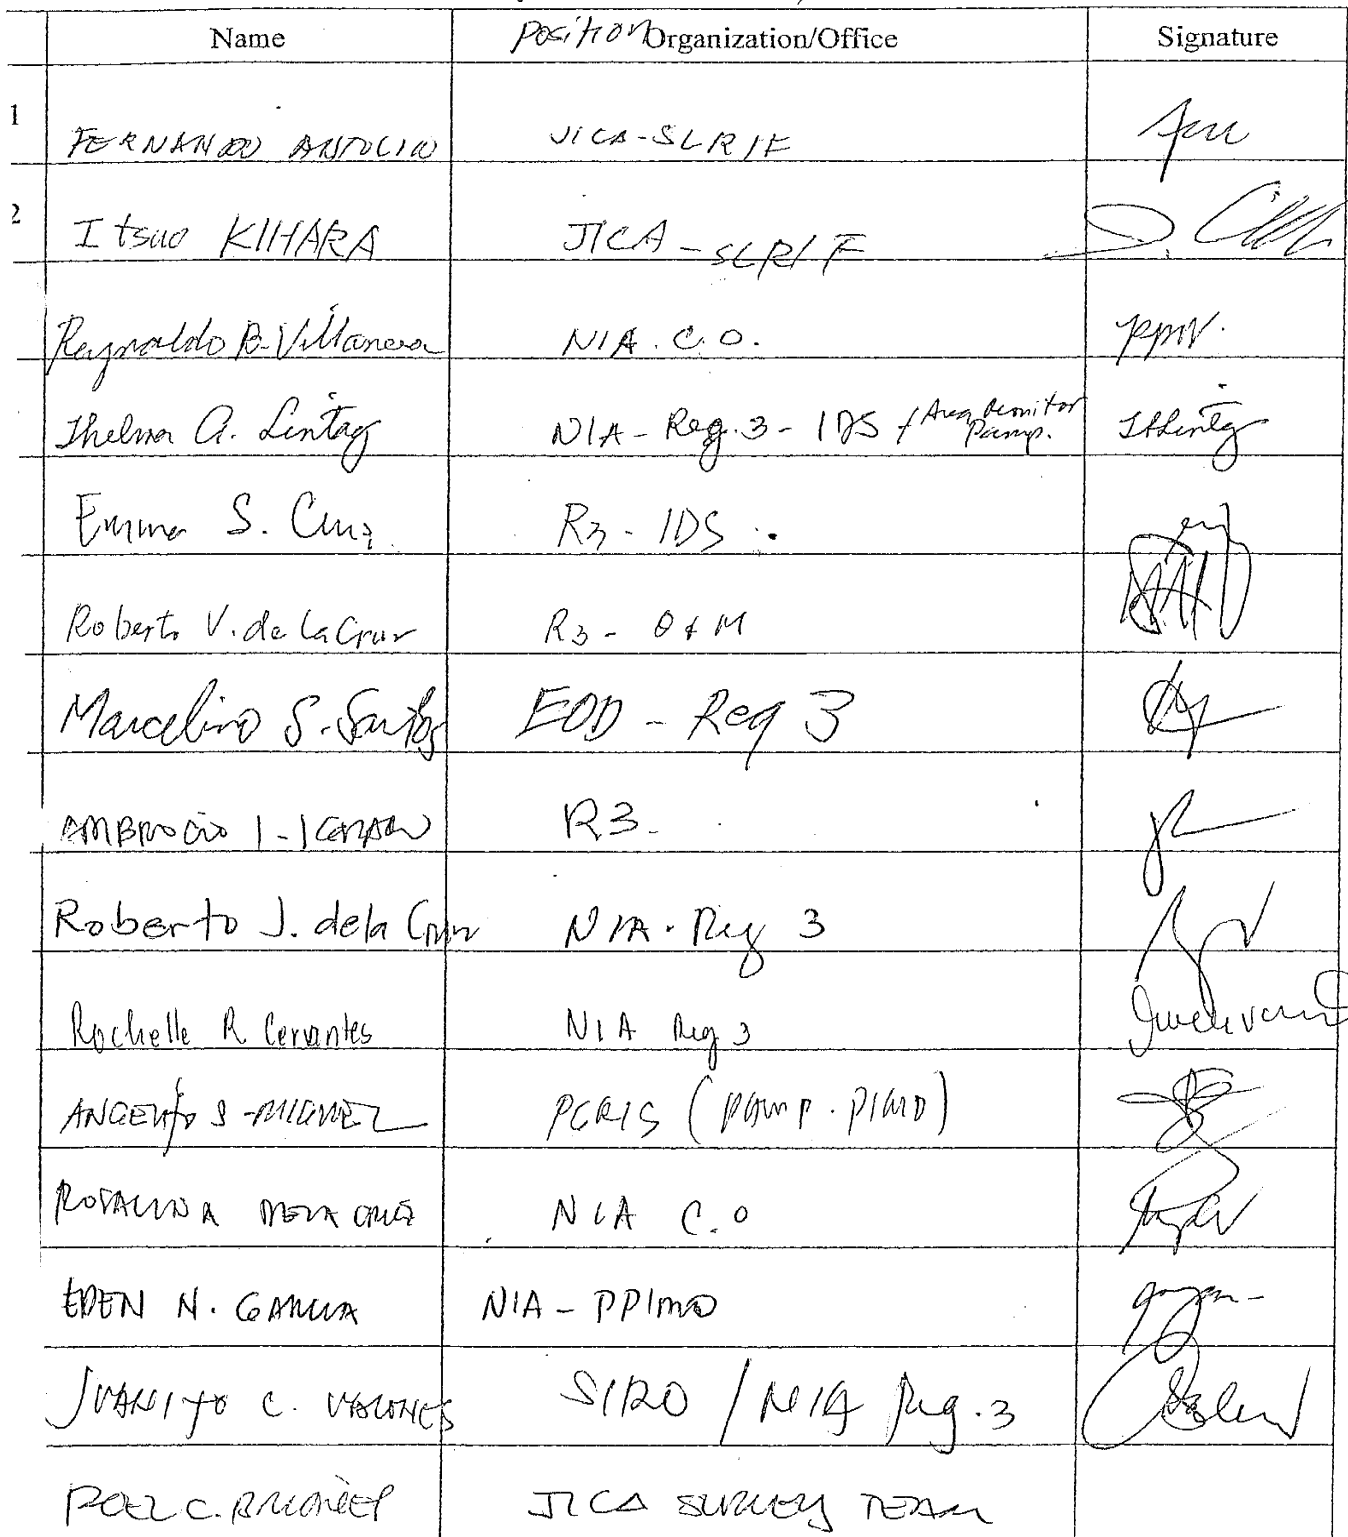 Name Position Organization/Office Signature
1 FERNANDO ANTOLIN JICA-SLRIF
2 Itsuo KIHARA JICA-SLRIF
Reynaldo B. Villanueva NIA. C.O.
Thelma A. Lintag NIA-Reg. 3-IDS / Area Monitor Pamp.
Emma S. Cruz R3-IDS
Roberto V. de la Cruz R3-O&M
Marcelino S. Santos EOD-Reg 3
AMBROCIO I. R3.
Roberto J. dela Cruz NIA. Reg 3
Rochelle R Cervantes NIA Reg 3
ANGELITO S. MIGUEL PCRIS (PAMP. PIMO)
ROSALINA DELA CRUZ NIA C.O
EDEN N. GARCIA NIA-PPIMO
JUANITO C. SIRO / NIA Reg. 3
C. BRIONES JICA SURVEY TEAM